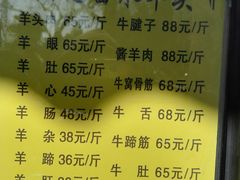 羊头肉 65元/斤 牛腱子 88元/斤
羊 眼 65元/斤 酱羊肉 88元/斤
羊 肚 65元/斤
羊 心 45元/斤 牛窝骨筋 68元/斤
羊 肠 48元/斤 牛 舌 68元/斤
羊 杂 38元/斤 牛蹄筋 65元/斤
羊 蹄 36元/斤 牛 肚 65元/斤